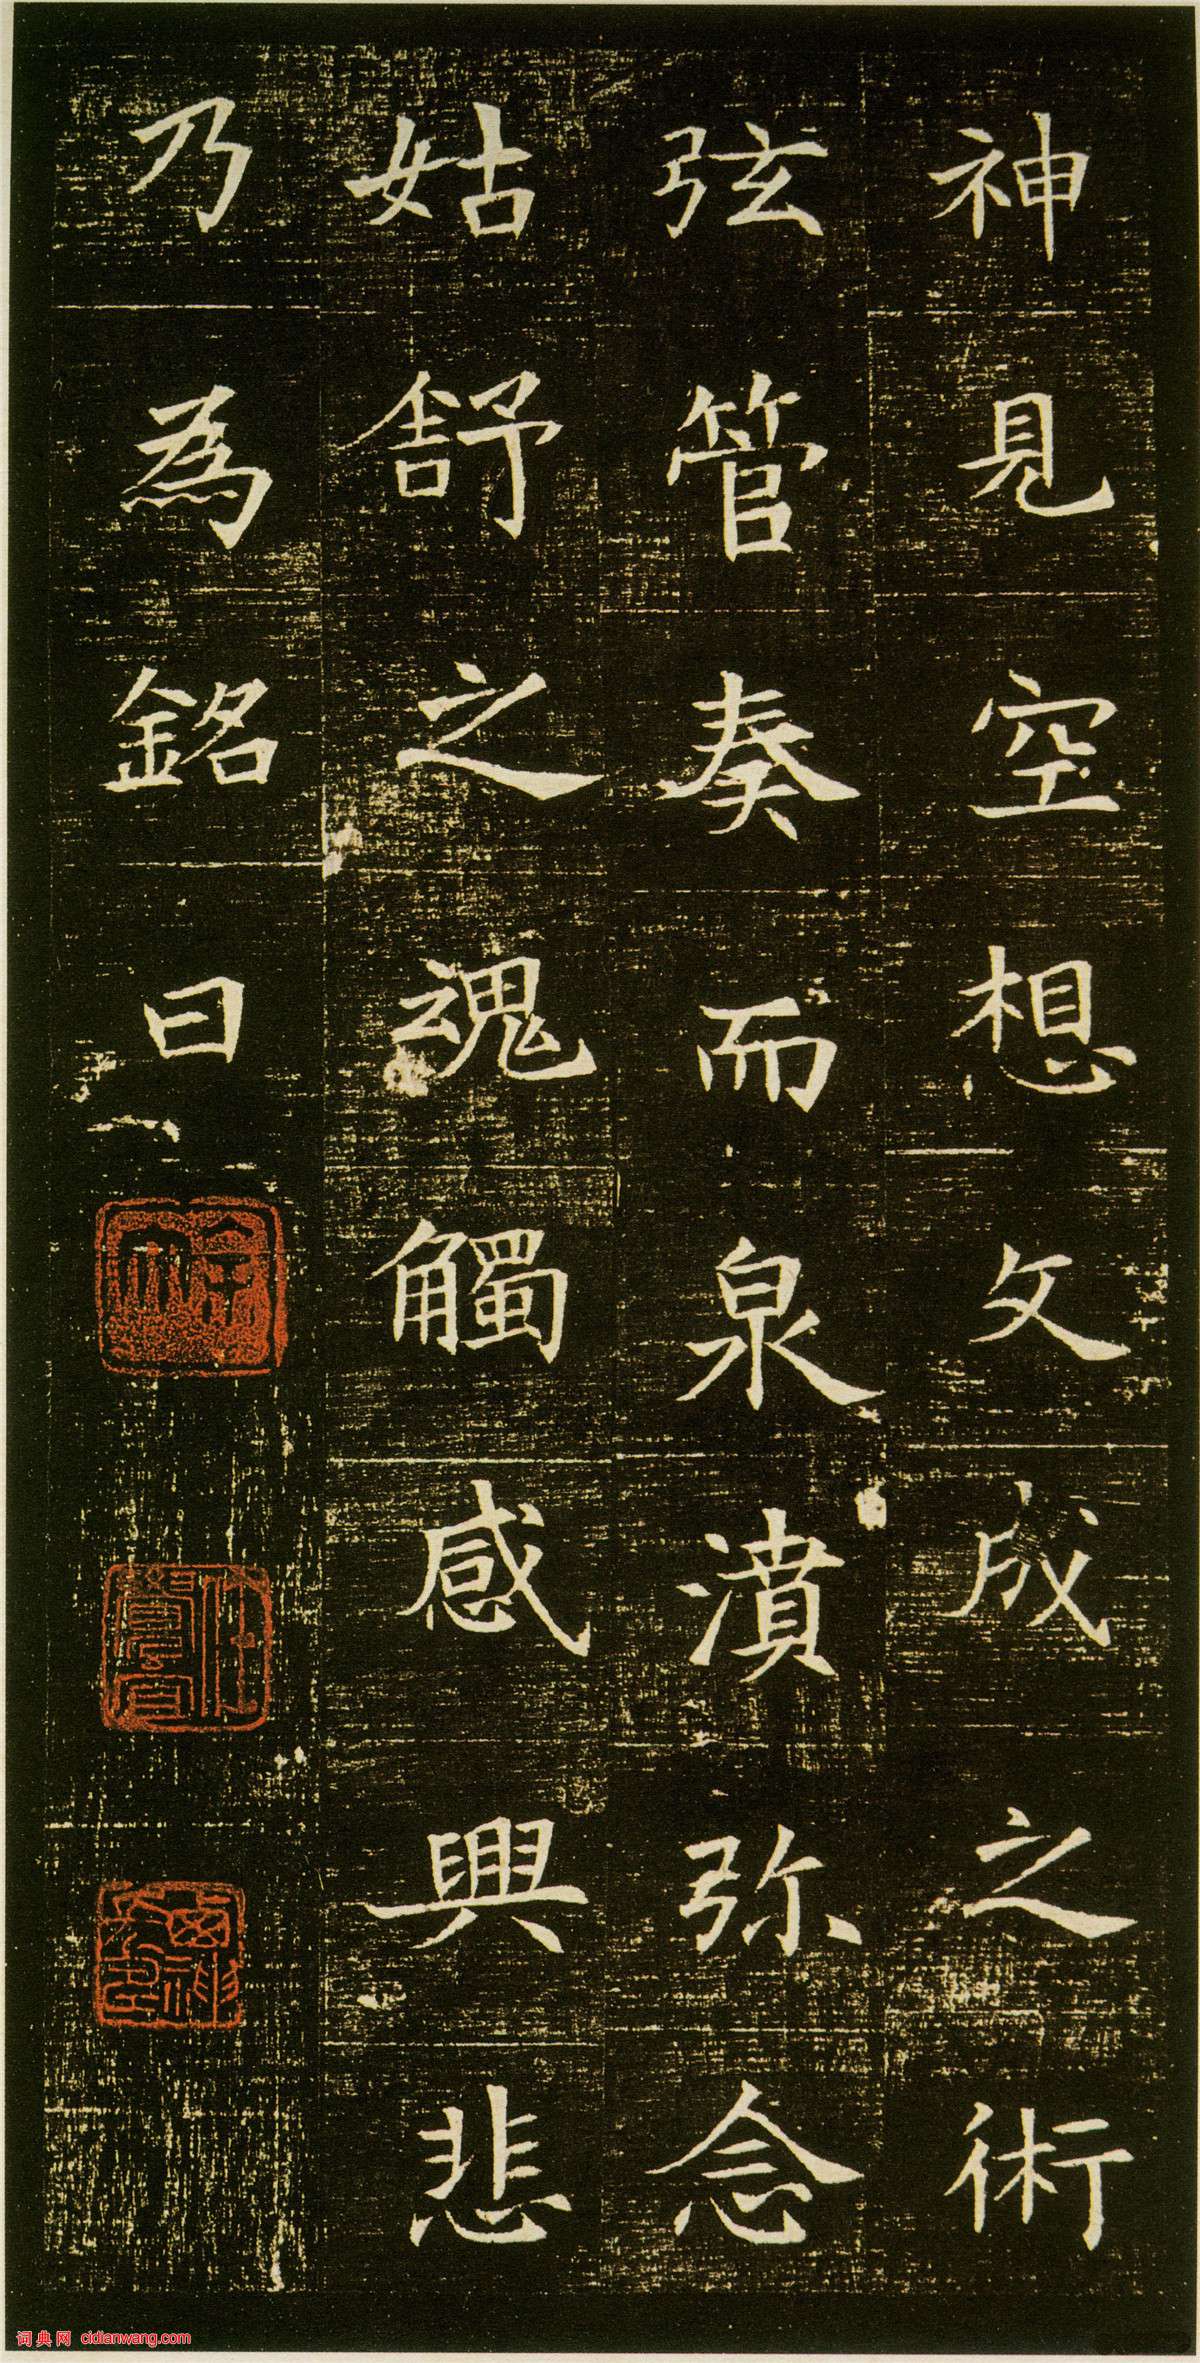 神見空想文成之術
弦管奏而泉濆弥念
姑舒之魂觸感興悲
乃為銘曰
词典网 cidianwang.com